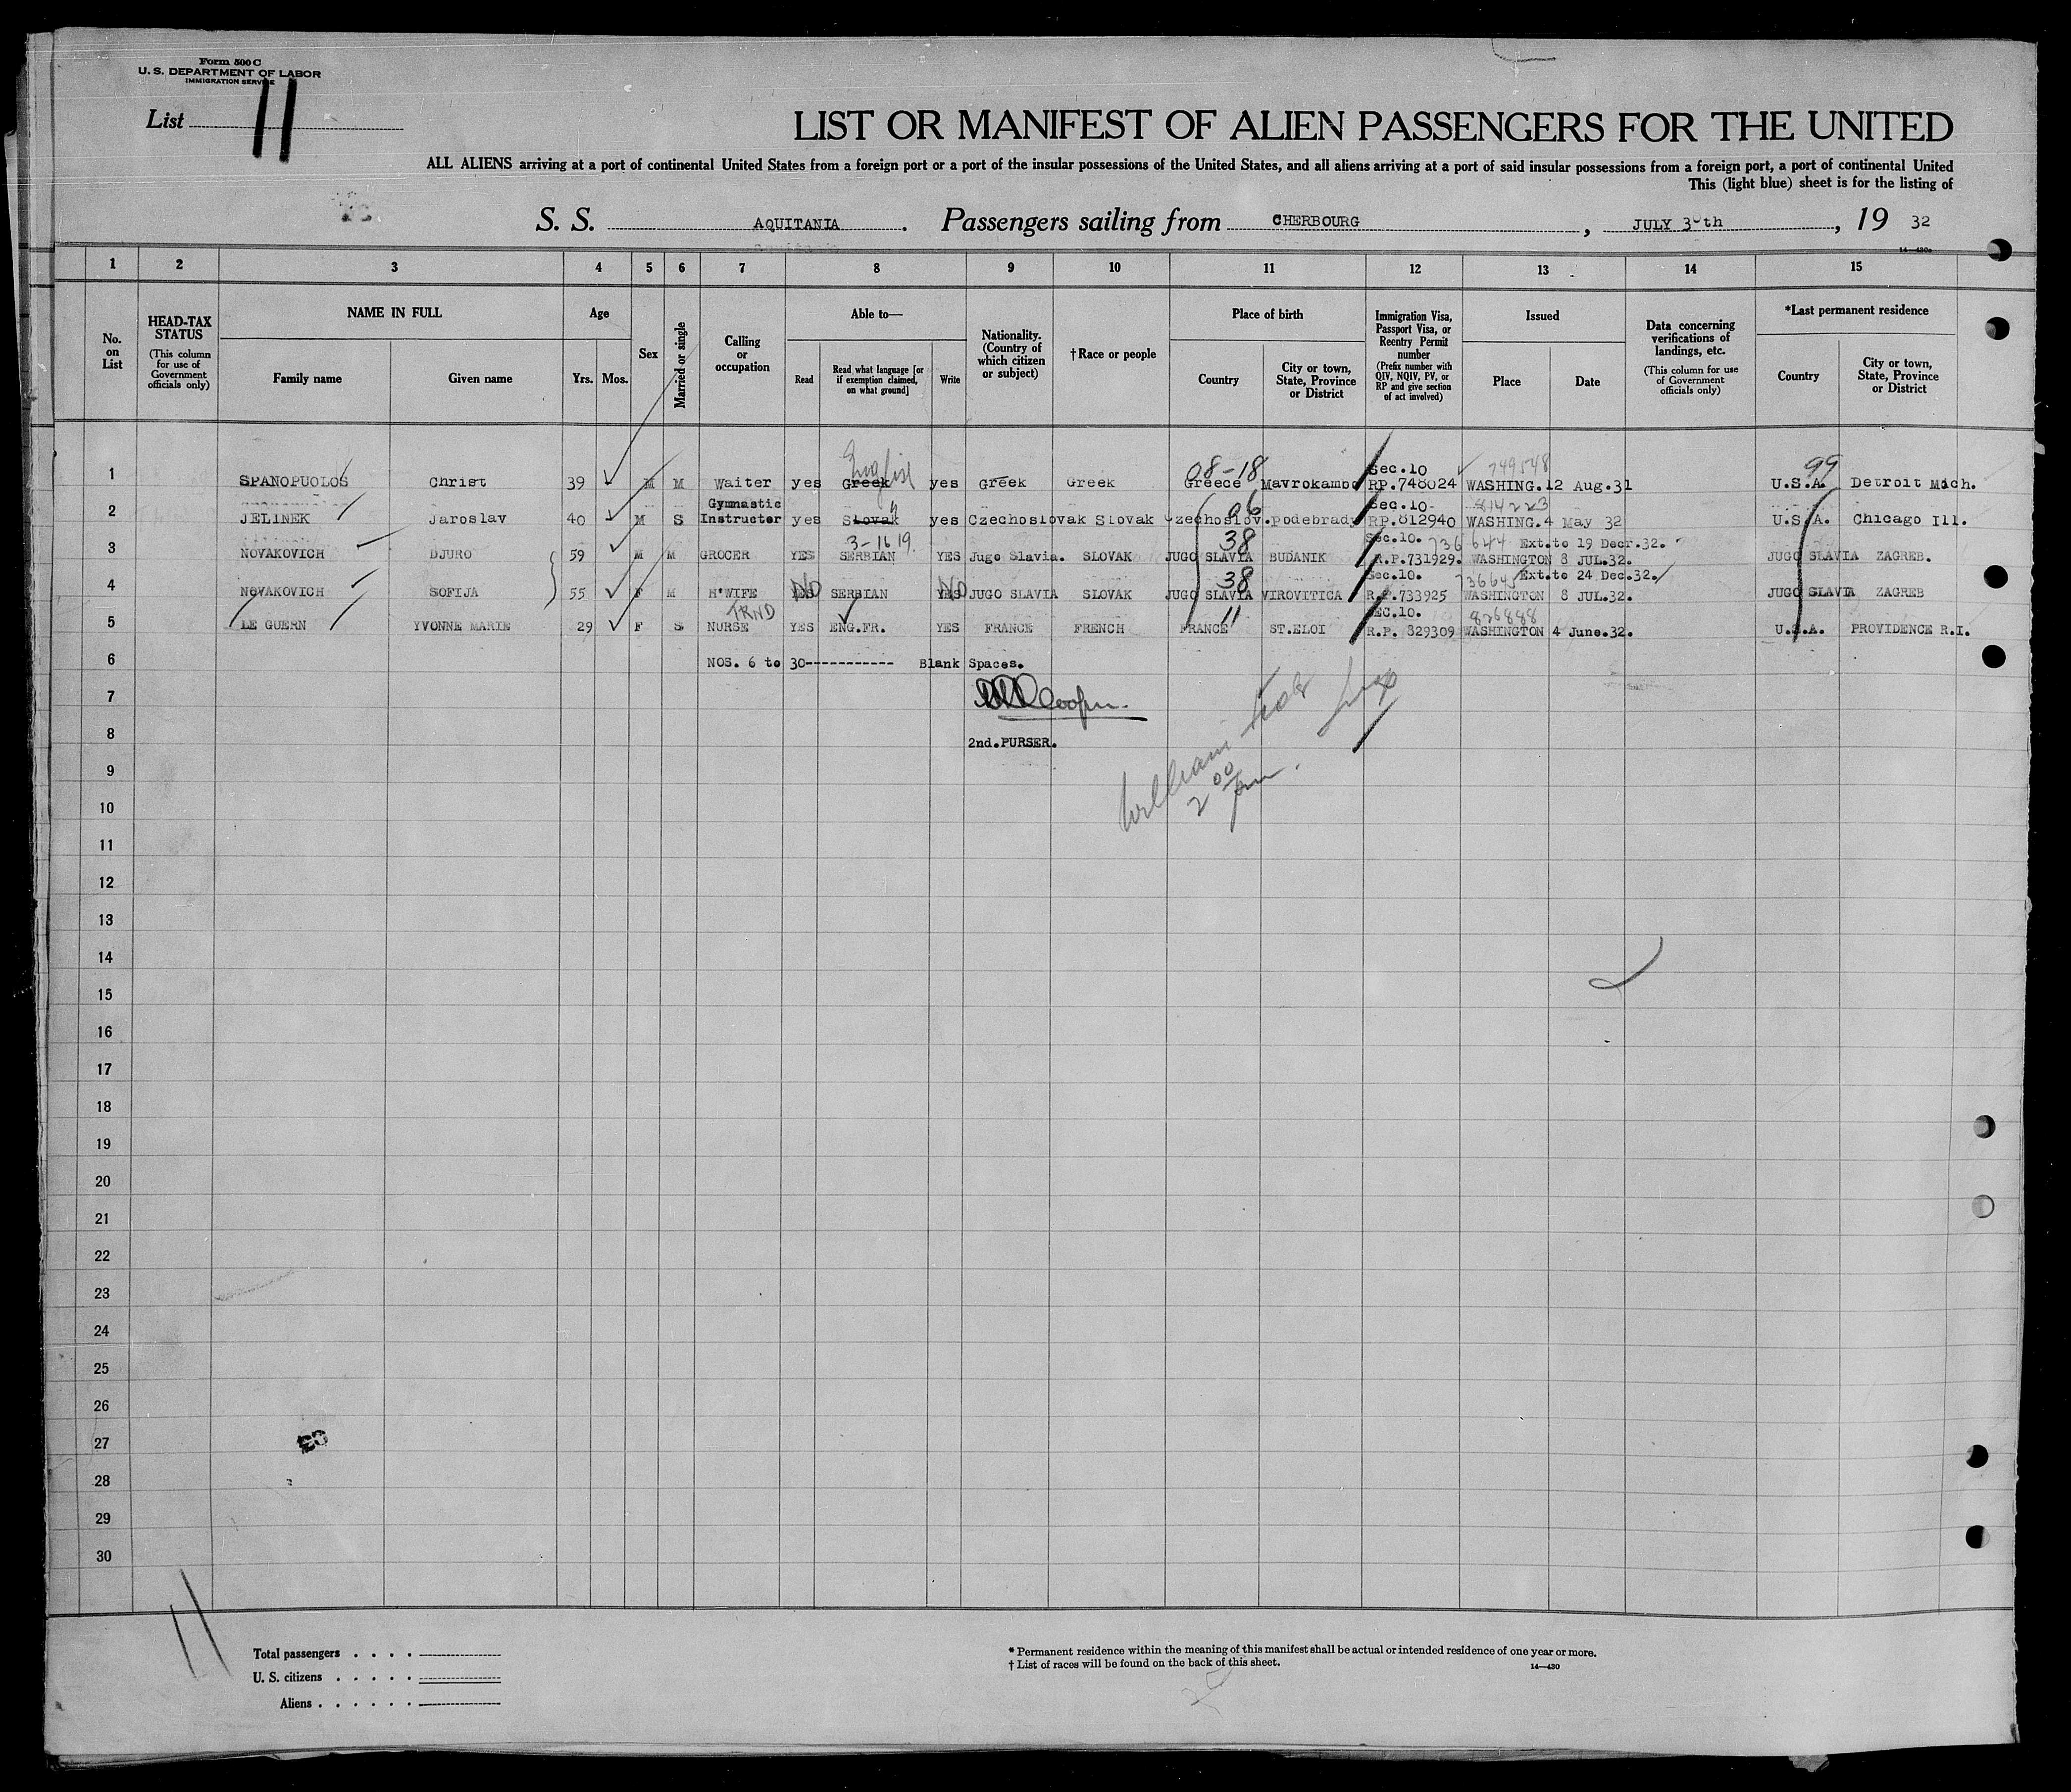 Form 500 C
U. S. DEPARTMENT OF LABOR
IMMIGRATION SERVICE
List 11
LIST OR MANIFEST OF ALIEN PASSENGERS FOR THE UNITED
ALL ALIENS arriving at a port of continental United States from a foreign port or a port of the insular possessions of the United States, and all aliens arriving at a port of said insular possessions from a foreign port, a port of continental United
This (light blue) sheet is for the listing of
S. S. AQUITANIA. Passengers sailing from CHERBOURG, JULY 30th, 19 32
14—430c
1 2 3 4 5 6 7 8 9 10 11 12 13 14 15
No. on List
HEAD-TAX STATUS (This column for use of Government officials only)
NAME IN FULL
Family name Given name
Age
Yrs. Mos.
Sex
Married or single
Calling or occupation
Able to—
Read Read what language [or if exemption claimed, on what ground] Write
Nationality. (Country of which citizen or subject)
†Race or people
Place of birth
Country City or town, State, Province or District
Immigration Visa, Passport Visa, or Reentry Permit number (Prefix number with QIV, NQIV, PV, or RP and give section of act involved)
Issued
Place Date
Data concerning verifications of landings, etc. (This column for use of Government officials only)
*Last permanent residence
Country City or town, State, Province or District
English 08-18 Sec.10 749548 99
1 SPANOPUOLOS Christ 39 M M Waiter yes Greek yes Greek Greek Greece Mavrokambo RP.748024 WASHING.12 Aug.31 U.S.A. Detroit Mich.
Gymnastic 06 Sec.10- 814223
2 JELINEK Jaroslav 40 M S Instructor yes Slovak yes Czechoslovak Slovak Czechoslov. Podebrady RP.812940 WASHING.4 May 32 U.S.A. Chicago Ill.
3-16 19 38 Sec.10. 736644 Ext.to 19 Decr.32.
3 NOVAKOVICH DJURO 59 M M GROCER YES SERBIAN YES Jugo Slavia. SLOVAK JUGO SLAVIA BUDANIK R.P.731929. WASHINGTON 8 JUL.32. JUGO SLAVIA ZAGREB.
NO NO 38 Sec.10. 736645 Ext.to 24 Dec.32.
4 NOVAKOVICH SOFIJA 55 F M H'WIFE YES SERBIAN YES JUGO SLAVIA SLOVAK JUGO SLAVIA VIROVITICA R.P.733925 WASHINGTON 8 JUL.32. JUGO SLAVIA ZAGREB
TRND 11 SEC.10. 826888
5 LE GUERN YVONNE MARIE 29 F S NURSE YES ENG.FR. YES FRANCE FRENCH FRANCE ST.ELOI R.P. 829309 WASHINGTON 4 June.32. U.S.A. PROVIDENCE R.I.
6 NOS. 6 to 30----------- Blank Spaces.
7 Cooper.
8 2nd.PURSER.
William
2 00 pm.
9
10
11
12
13
14
15
16
17
18
19
20
21
22
23
24
25
26
27
28
29
30
11
Total passengers
U. S. citizens
Aliens
* Permanent residence within the meaning of this manifest shall be actual or intended residence of one year or more.
† List of races will be found on the back of this sheet.
14—430